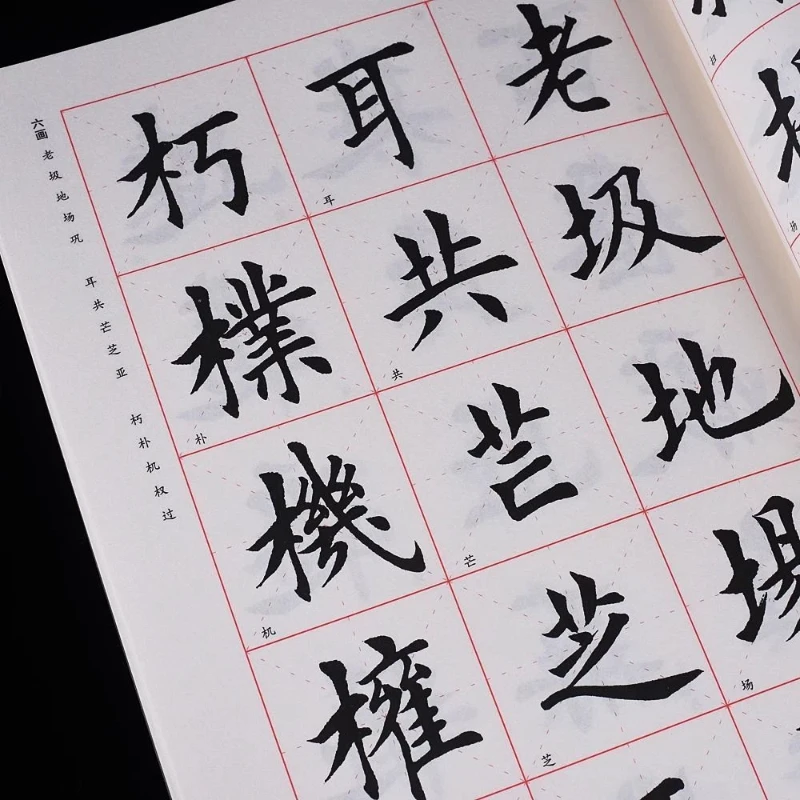 六画 老圾地场巩 耳共芒芝亚 朽朴机权过
老
圾
地
場
场
耳
耳
共
共
芒
芒
芝
芝
朽
樸
朴
機
机
權